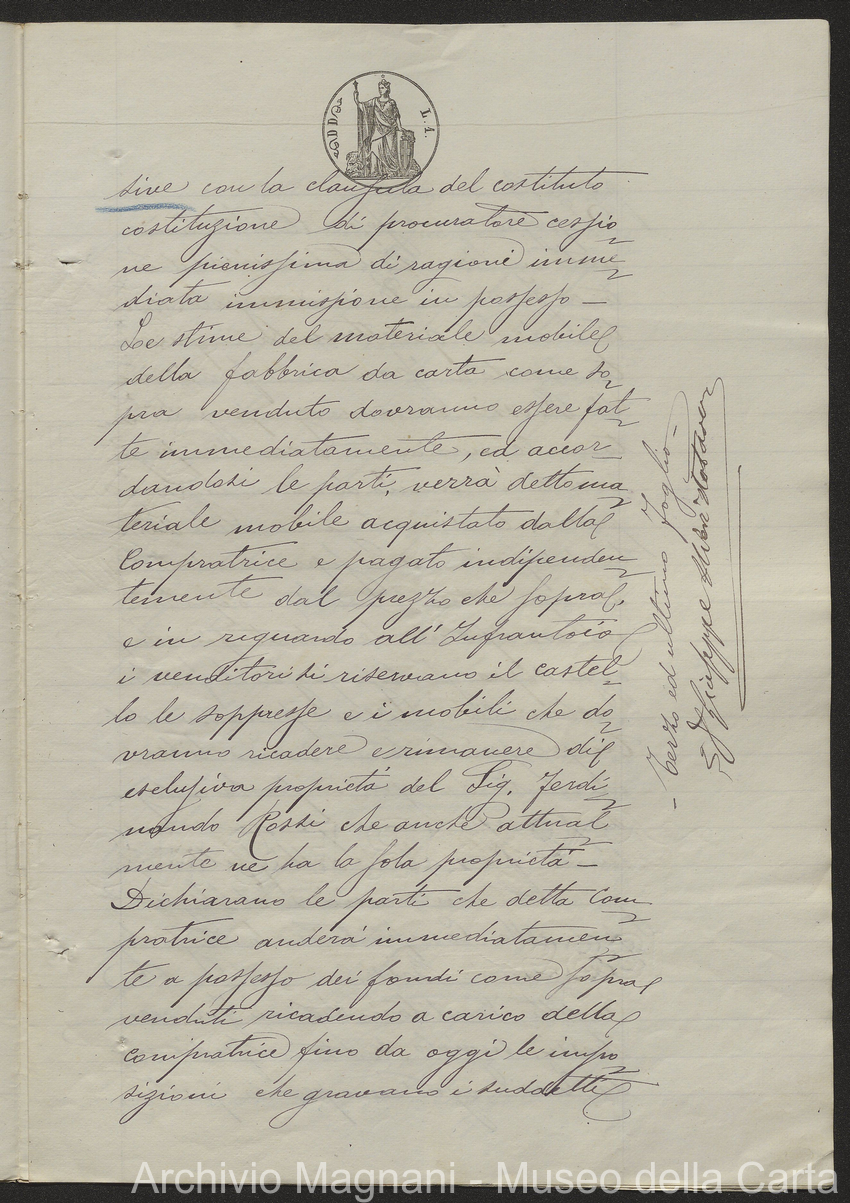 DD
L. 1.
sive con la clausula del costituto
costituzione di procuratore cessio
ne pienissima di ragioni imme
diata immissione in possesso —
Le stime del materiale mobile
della fabbrica da carta come so
pra venduto dovranno essere fat
te immediatamente, ed accor
dandosi le parti, verrà detto ma
teriale mobile acquistato dalla
Compratrice e pagato indipenden
temente dal prezzo che sopra,
e in riguardo all' Infrantoio
i venditori si riservano il castel
lo le soppresse e i mobili che do
vranno ricadere e rimanere di
esclusiva proprietà del Sig. Ferdi
nando Rossi che anche attual
mente ne ha la sola proprietà —
Dichiarano le parti che detta Com
pratrice anderà immediatamen
te a possesso dei fondi come sopra
venduti ricadendo a carico della
compratrice fino da oggi le impo
sizioni che gravano i suddetti
— Terzo ed ultimo foglio —
Giuseppe
Archivio Magnani - Museo della Carta